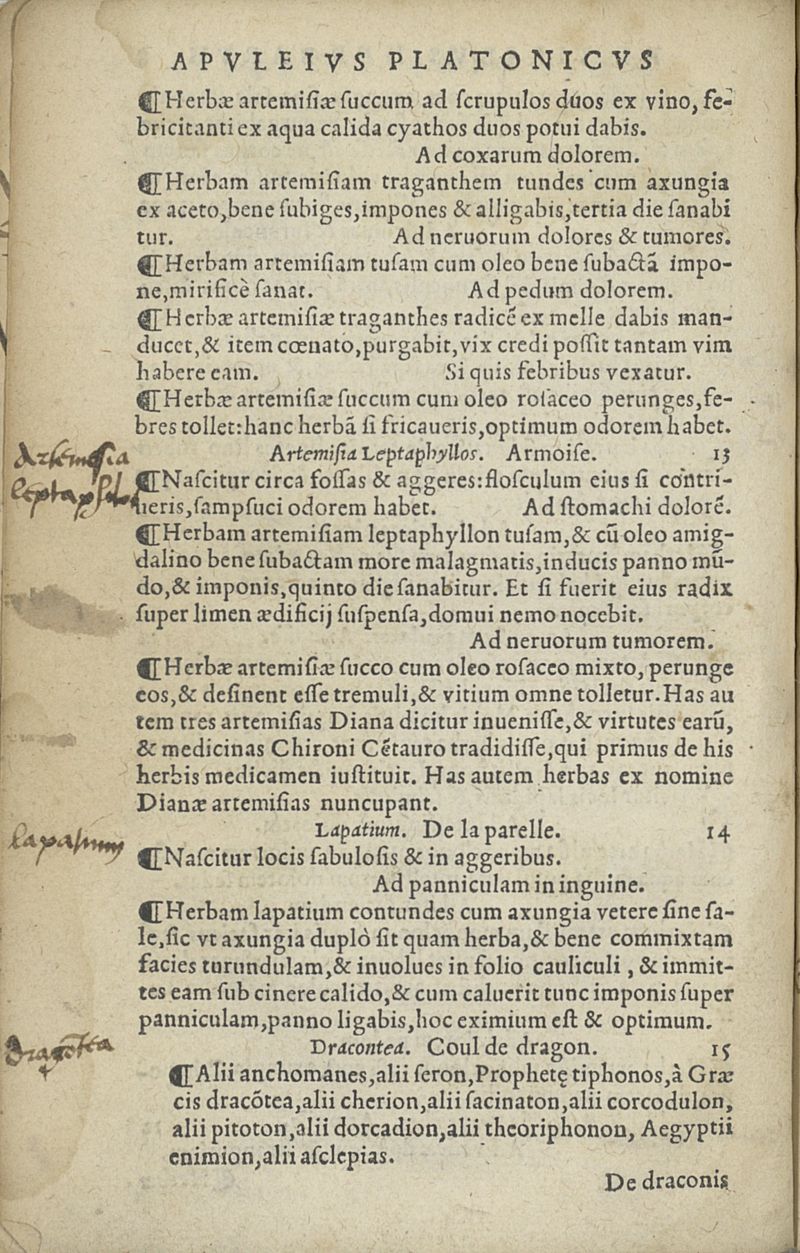 APVLEIVS PLATONICVS
¶Herbæ artemiſiæ ſuccum ad ſcrupulos duos ex vino, fe-
bricitanti ex aqua calida cyathos duos potui dabis.
Ad coxarum dolorem.
¶Herbam artemiſiam traganthem tundes cum axungia
ex aceto, bene ſubiges, impones & alligabis, tertia die ſanabi
tur. Ad neruorum dolores & tumores.
¶Herbam artemiſiam tuſam cum oleo bene ſubactã impo-
ne, mirificè ſanat. Ad pedum dolorem.
¶Herbæ artemiſiæ traganthes radicẽ ex melle dabis man-
ducet, & item cœnato, purgabit, vix credi poſſit tantam vim
habere eam. Si quis febribus vexatur.
¶Herbæ artemiſiæ ſuccum cum oleo roſaceo perunges, fe-
bres tollet: hanc herbã ſi fricaueris, optimum odorem habet.
Artemiſia Leptaphyllos. Armoiſe. 13
Artemesia
leptaphyllos
¶Naſcitur circa foſſas & aggeres: floſculum eius ſi contri-
ueris, ſampſuci odorem habet. Ad ſtomachi dolorẽ.
¶Herbam artemiſiam leptaphyllon tuſam, & cũ oleo amig-
dalino bene ſubactam more malagmatis, inducis panno mũ-
do, & imponis, quinto die ſanabitur. Et ſi fuerit eius radix
ſuper limen ædificij ſuſpenſa, domui nemo nocebit.
Ad neruorum tumorem.
¶Herbæ artemiſiæ ſucco cum oleo roſaceo mixto, perunge
eos, & deſinent eſſe tremuli, & vitium omne tolletur. Has au
tem tres artemiſias Diana dicitur inueniſſe, & virtutes earũ,
& medicinas Chironi Cẽtauro tradidiſſe, qui primus de his
herbis medicamen iuſtituit. Has autem herbas ex nomine
Dianæ artemiſias nuncupant.
Lapatium. De la parelle. 14
Lapatium
¶Naſcitur locis ſabuloſis & in aggeribus.
Ad panniculam in inguine.
¶Herbam lapatium contundes cum axungia vetere ſine ſa-
le, ſic vt axungia duplò ſit quam herba, & bene commixtam
facies turundulam, & inuolues in folio cauliculi, & immit-
tes eam ſub cinere calido, & cum caluerit tunc imponis ſuper
panniculam, panno ligabis, hoc eximium eſt & optimum.
Dracontea. Coul de dragon. 15
Dragõtea
¶Alii anchomanes, alii ſeron, Prophetę tiphonos, à Græ
cis dracõtea, alii cherion, alii ſacinaton, alii corcodulon,
alii pitoton, alii dorcadion, alii theoriphonon, Aegyptii
enimion, alii aſclepias.
De draconis